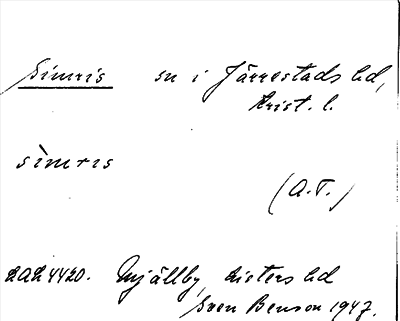 Simris sn i Järrestads hd,
Krist. l.
sìmris
(A.T.)
2A24420. Mjällby, Listers hd
Sven Benson 1947.